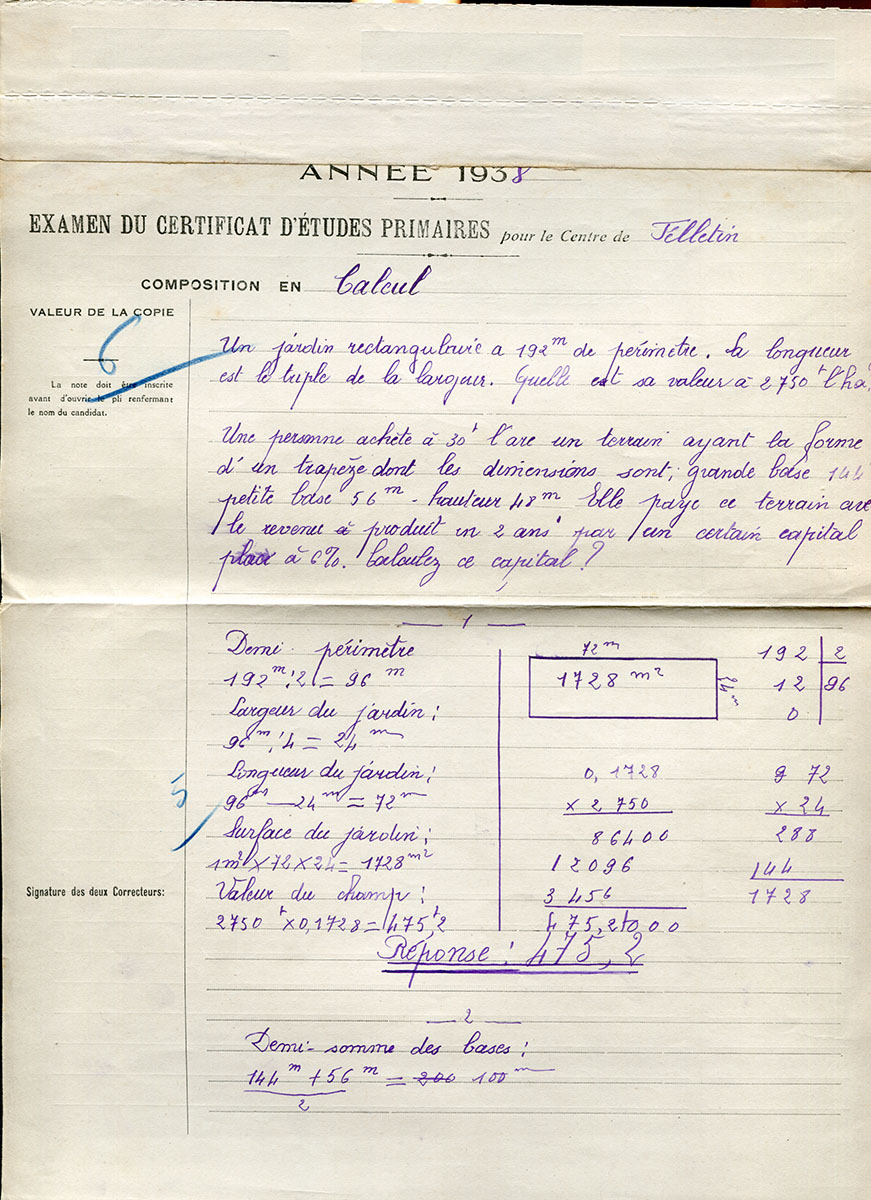 ANNÉE 1938
EXAMEN DU CERTIFICAT D'ÉTUDES PRIMAIRES pour le Centre de Felletin
COMPOSITION EN Calcul
VALEUR DE LA COPIE
6
La note doit être inscrite
avant d'ouvrir le pli renfermant
le nom du candidat.
Un jardin rectangulaire a 192m de périmètre. La longueur
est le triple de la largeur. Quelle est sa valeur à 2750f l'ha,
Une personne achète à 30f l'are un terrain ayant la forme
d'un trapèze dont les dimensions sont; grande base 144
petite base 56m - hauteur 48m Elle paye ce terrain ave
le revenu à produit en 2 ans par un certain capital
placé à 6%. Calculez ce capital ?
1
Demi périmètre
192m : 2 = 96 m
Largeur du jardin :
96m : 4 = 24m
Longueur du jardin :
96m — 24m = 72m
Surface du jardin :
1m² × 72 × 24 = 1728m²
Valeur du champ :
2750f × 0,1728 = 475f,2
5
72m
1728 m²
24m
192 2
12 96
0
0,1728
× 2 750
86400
12096
3 456
475,2000
9 72
× 24
288
144
1728
Réponse : 475,2
Signature des deux Correcteurs:
2
Demi-somme des bases :
144m + 56m = 200 100m
2